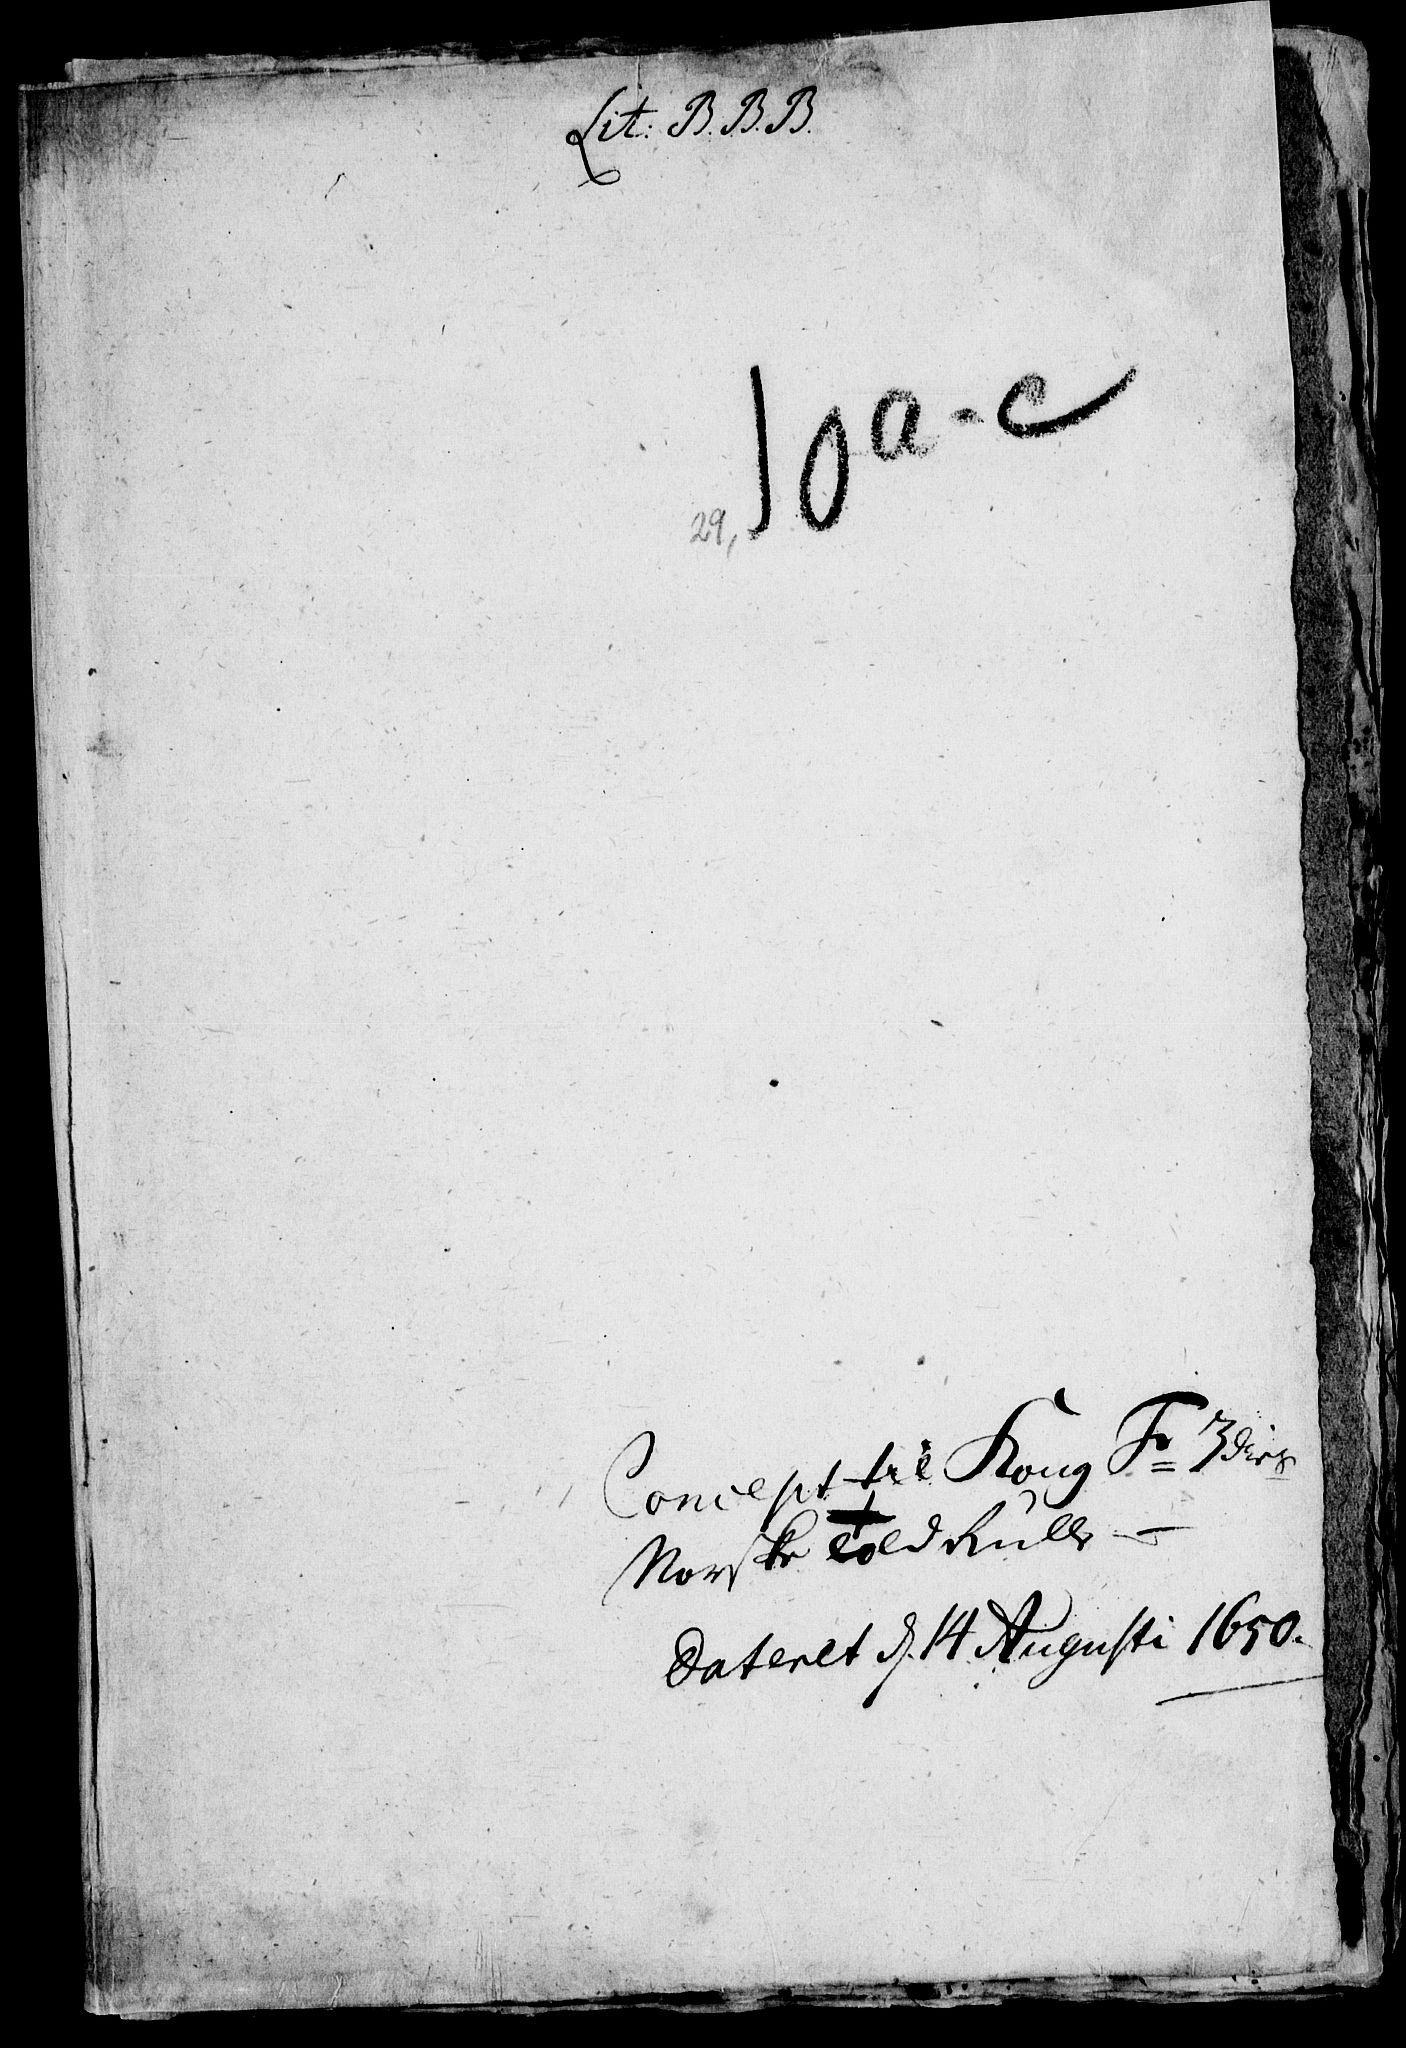 Lit: B. B. B.
10 a-c
29,
Concept til Kong F 3dies
Norske Told Rulle —
Dateret d. 14 Augusti 1650.